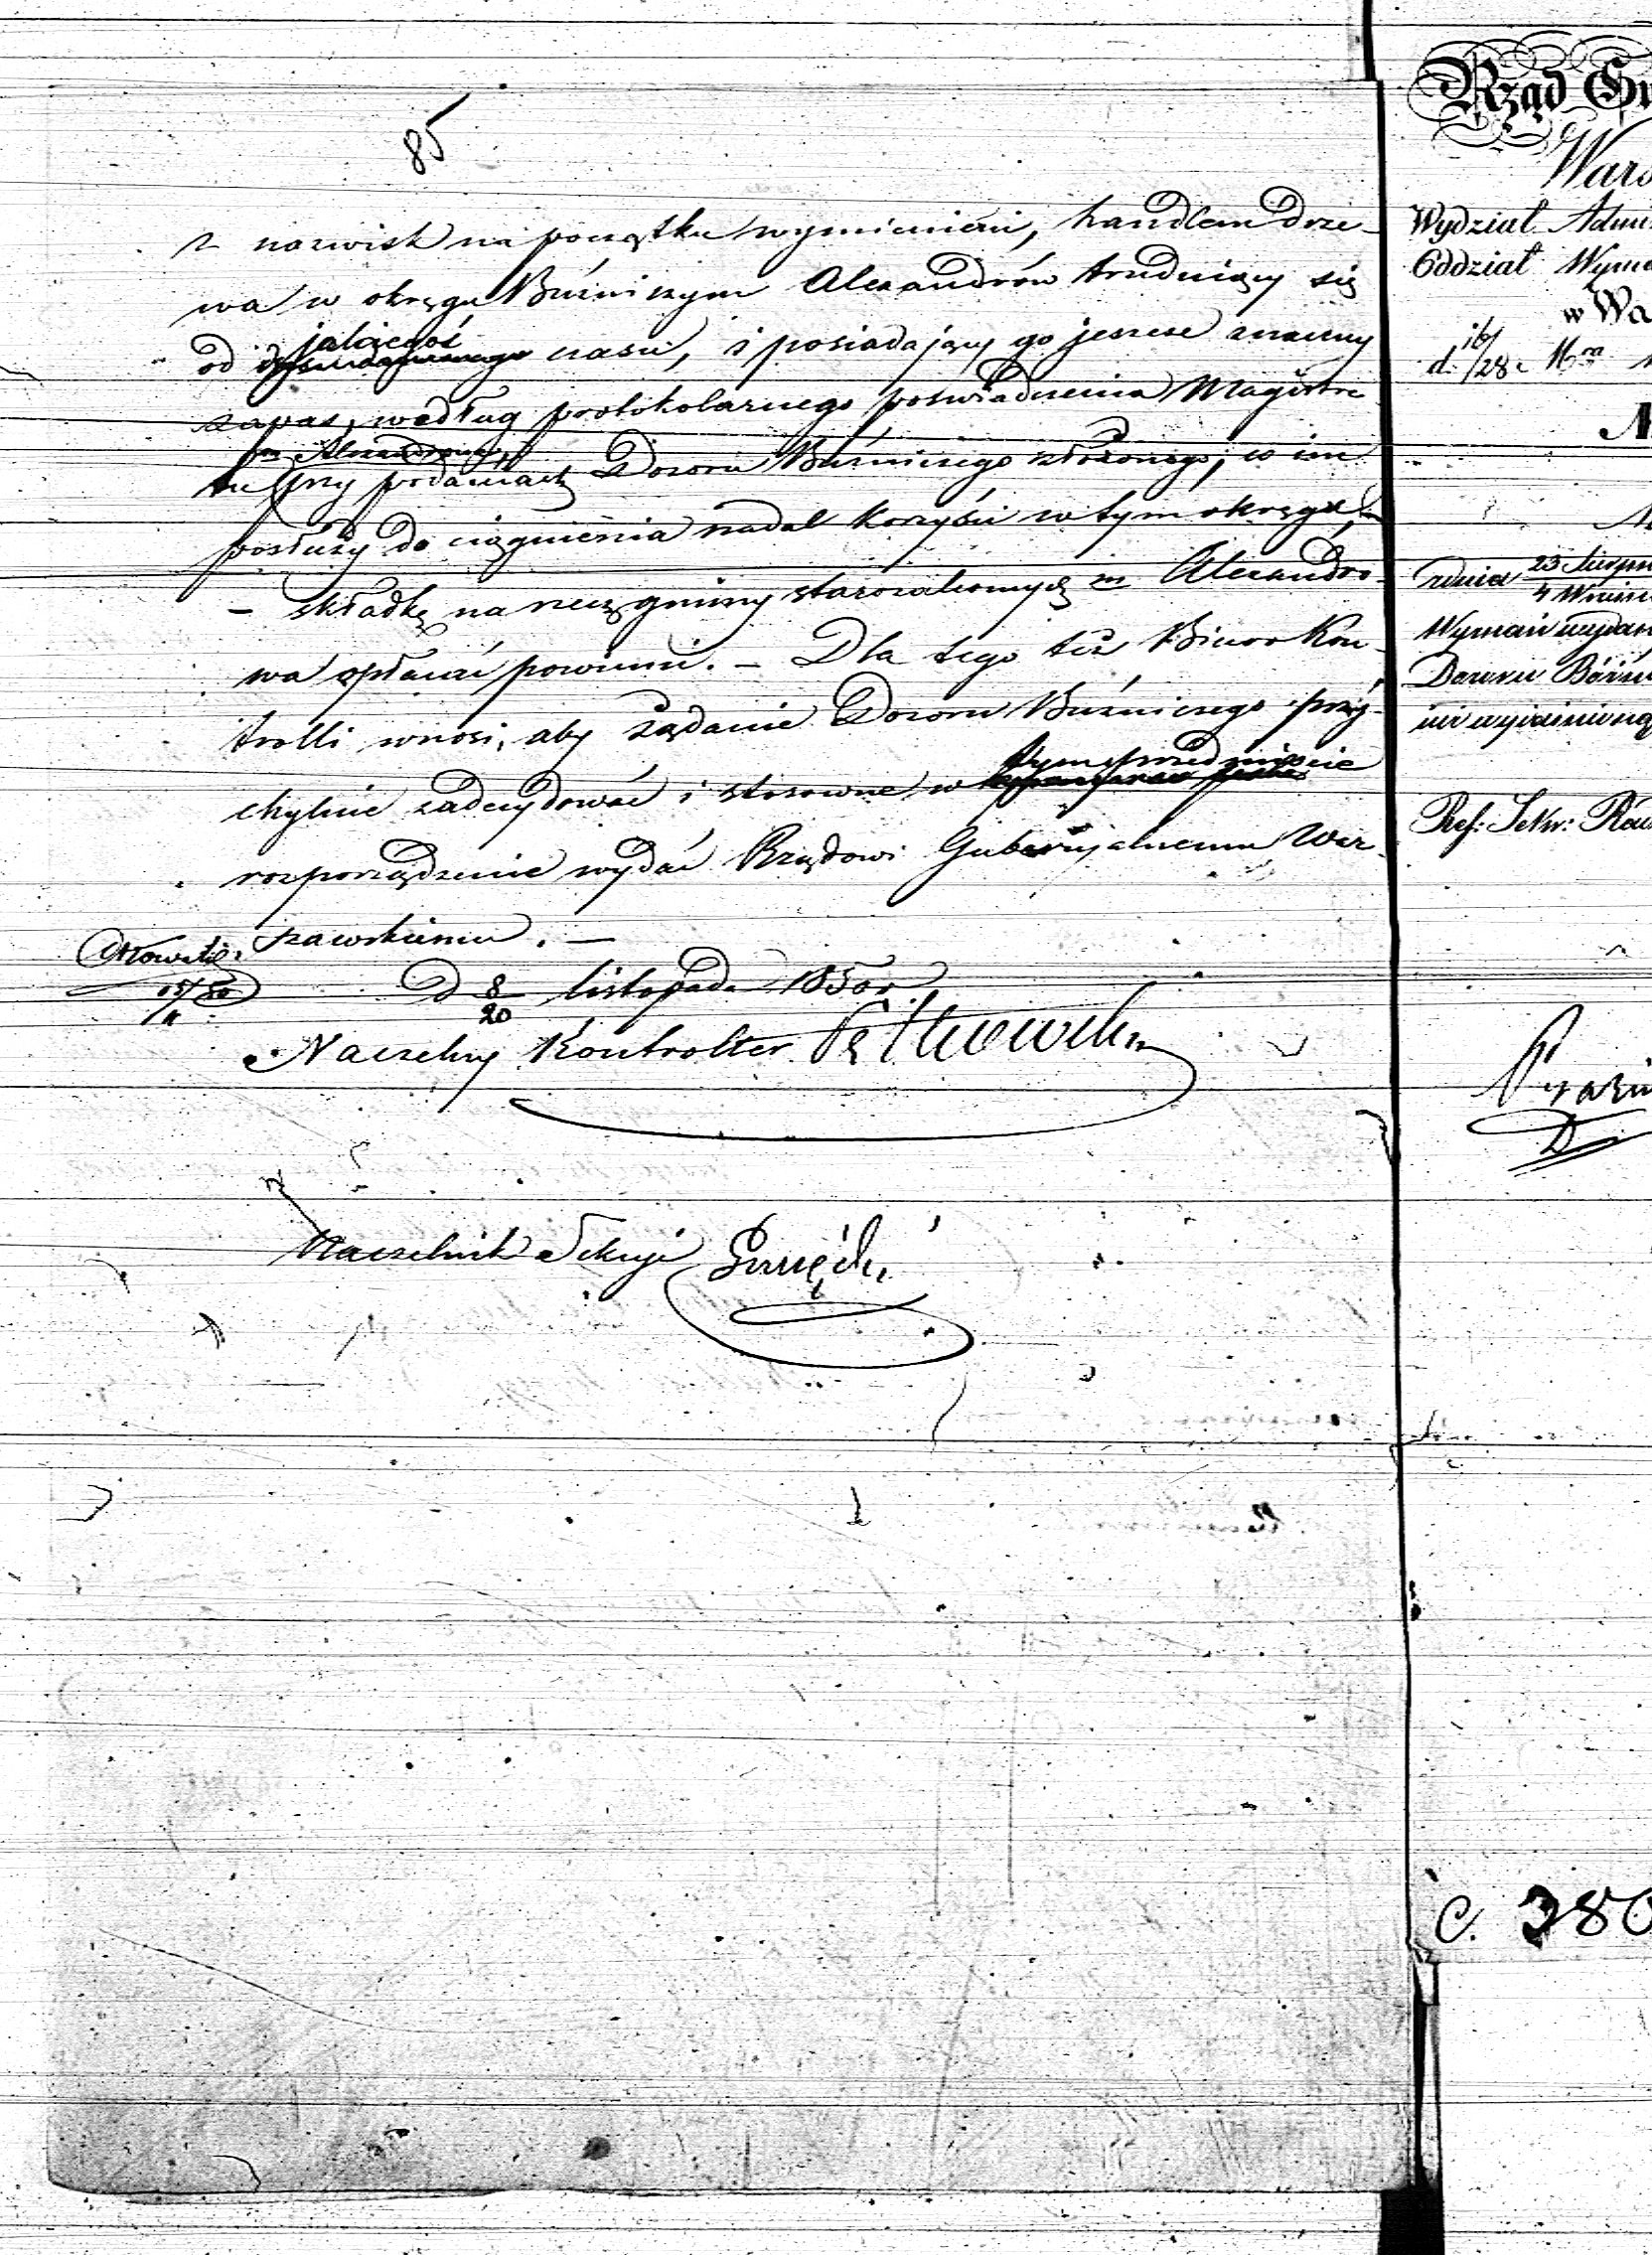 85
z nazwisk na początku wymienieni, handlem drze-
wa w okręgu Bużniczym Alexandrów trudniący się
jakiegoś
od czasu, i posiadający go jeszcze znaczny
zapas, według protokolarnego poświadczenia Magistra-
m. Alexandrowa,
tu przy podaniach Dozoru Bużniczego złożonego, co im
posłuży do ciągnienia nadal korzyści w tym okręgu,
– składkę na rzecz gminy starozakonnych m Alexandro-
wa opłacać powinni. – Dla tego też Biuro Kon-
trolli wnosi, aby żądanie Dozoru Bużniczego przy-
tym przedmiocie
chylnie zadecydować i stosowne w
rozporządzenie wydać Rządowi Gubernjalnemu War-
szawskiemu. –
D 8/20 listopada 1850 r
Naczelny Kontroller
Naczelnik Sekcyi
Rząd Gu
Wars
Wydział Admi
Oddział Wyzna
w Wa
d. 16/28
N
zdnia 23 Sierpn
4 Wrześ
Wyznań wydan
Dozoru Bóżni
Ref: Sekr: Rad
C. 280